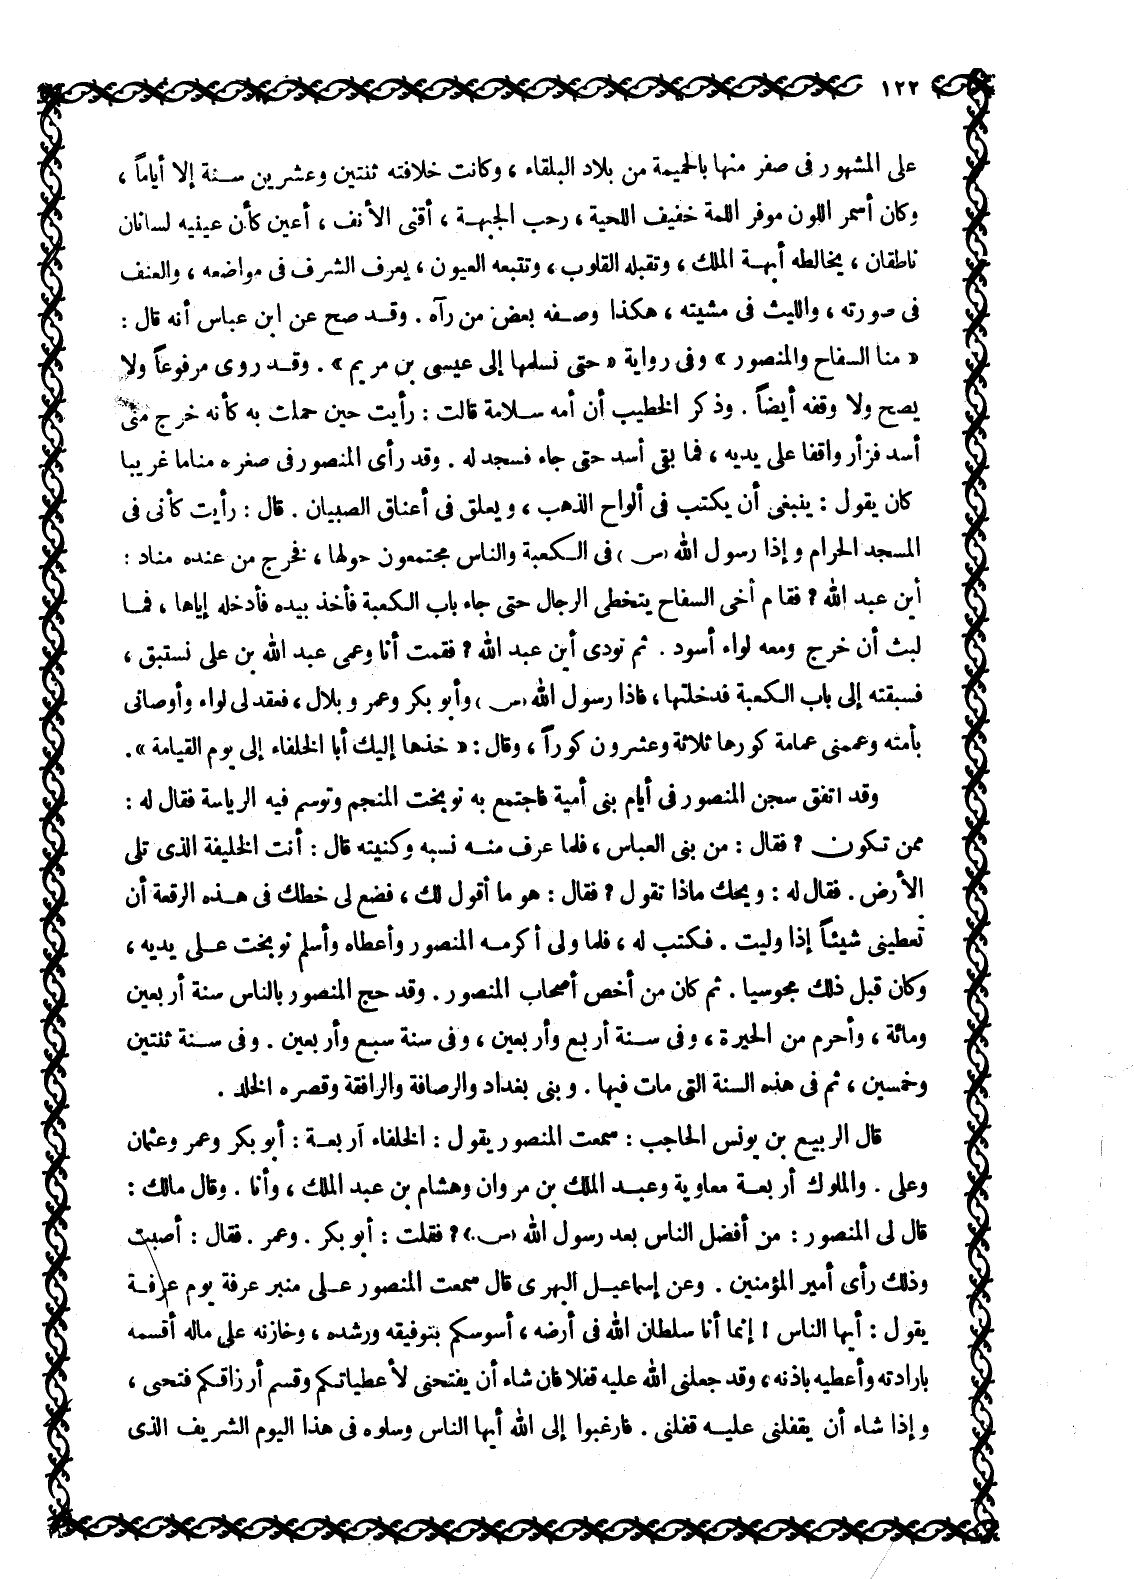 ١٢٢
على المشهور فى صفر منها بالحميمة من بلاد البلقاء ، وكانت خلافته ثنتين وعشرين سنة إلا أياماً ،
وكان أسمر اللون موفر اللمة خفيف اللحية ، رحب الجبهة ، أقنى الأنف ، أعين كأن عينيه لسانان
ناطقان ، يخالطه أبهة الملك ، وتقبله القلوب ، وتتبعه العيون ، يعرف الشرف فى مواضعه ، والعنف
فى صورته ، والليث فى مشيته ، هكذا وصفه بعض من رآه . وقد صح عن ابن عباس أنه قال :
« منا السفاح والمنصور » وفى رواية « حتى نسلمها إلى عيسى بن مريم » . وقد روى مرفوعاً ولا
يصح ولا وقفه أيضاً . وذكر الخطيب أن أمه سلامة قالت : رأيت حين حملت به كأنه خرج منى
أسد فزأر واقفا على يديه ، فما بقى أسد حتى جاء فسجد له . وقد رأى المنصور فى صغره مناما غريبا
كان يقول : ينبغى أن يكتب فى ألواح الذهب ، ويعلق فى أعناق الصبيان . قال : رأيت كأنى فى
المسجد الحرام وإذا رسول الله (س) فى الكعبة والناس مجتمعون حولها ، فخرج من عنده مناد :
أين عبد الله ؟ فقام أخى السفاح يتخطى الرجال حتى جاء باب الكعبة فأخذ بيده فأدخله إياها ، فما
لبث أن خرج ومعه لواء أسود . ثم نودى أين عبد الله ؟ فقمت أنا وعمى عبد الله بن على نستبق ،
فسبقته إلى باب الكعبة فدخلتها ، فاذا رسول الله (س) وأبو بكر وعمر وبلال ، فعقد لى لواء وأوصانى
بأمته وعممنى عمامة كورها ثلاثة وعشرون كوراً ، وقال : « خذها إليك أبا الخلفاء إلى يوم القيامة » .
وقد اتفق سجن المنصور فى أيام بنى أمية فاجتمع به نوبخت المنجم وتوسم فيه الرياسة فقال له :
ممن تكون ؟ فقال : من بنى العباس ، فلما عرف منه نسبه وكنيته قال : أنت الخليفة الذى تلى
الأرض . فقال له : ويحك ماذا تقول ؟ فقال : هو ما أقول لك ، فضع لى خطك فى هذه الرقعة أن
تعطينى شيئاً إذا وليت . فكتب له ، فلما ولى أكرمه المنصور وأعطاه وأسلم نوبخت على يديه ،
وكان قبل ذلك مجوسيا . ثم كان من أخص أصحاب المنصور . وقد حج المنصور بالناس سنة أربعين
ومائة ، وأحرم من الحيرة ، وفى سنة أربع وأربعين ، وفى سنة سبع وأربعين . وفى سنة ثنتين
وخمسين ، ثم فى هذه السنة التى مات فيها . وبنى بغداد والرصافة والرافقة وقصره الخلد .
قال الربيع بن يونس الحاجب : سمعت المنصور يقول : الخلفاء أربعة : أبو بكر وعمر وعثمان
وعلى . والملوك أربعة معاوية وعبد الملك بن مروان وهشام بن عبد الملك ، وأنا . وقال مالك :
قال لى المنصور : من أفضل الناس بعد رسول الله (س) ؟ فقلت : أبو بكر . وعمر . فقال : أصبت
وذلك رأى أمير المؤمنين . وعن إسماعيل البهرى قال سمعت المنصور على منبر عرفة يوم عرفة
يقول : أيها الناس ! إنما أنا سلطان الله فى أرضه ، أسوسكم بتوفيقه ورشده ، وخازنه على ماله أقسمه
بارادته وأعطيه باذنه ، وقد جعلنى الله عليه قفلا فان شاء أن يفتحنى لأعطياتكم وقسم أرزاقكم فتحى ،
وإذا شاء أن يقفلنى عليه قفلنى . فارغبوا إلى الله أيها الناس وسلوه فى هذا اليوم الشريف الذى